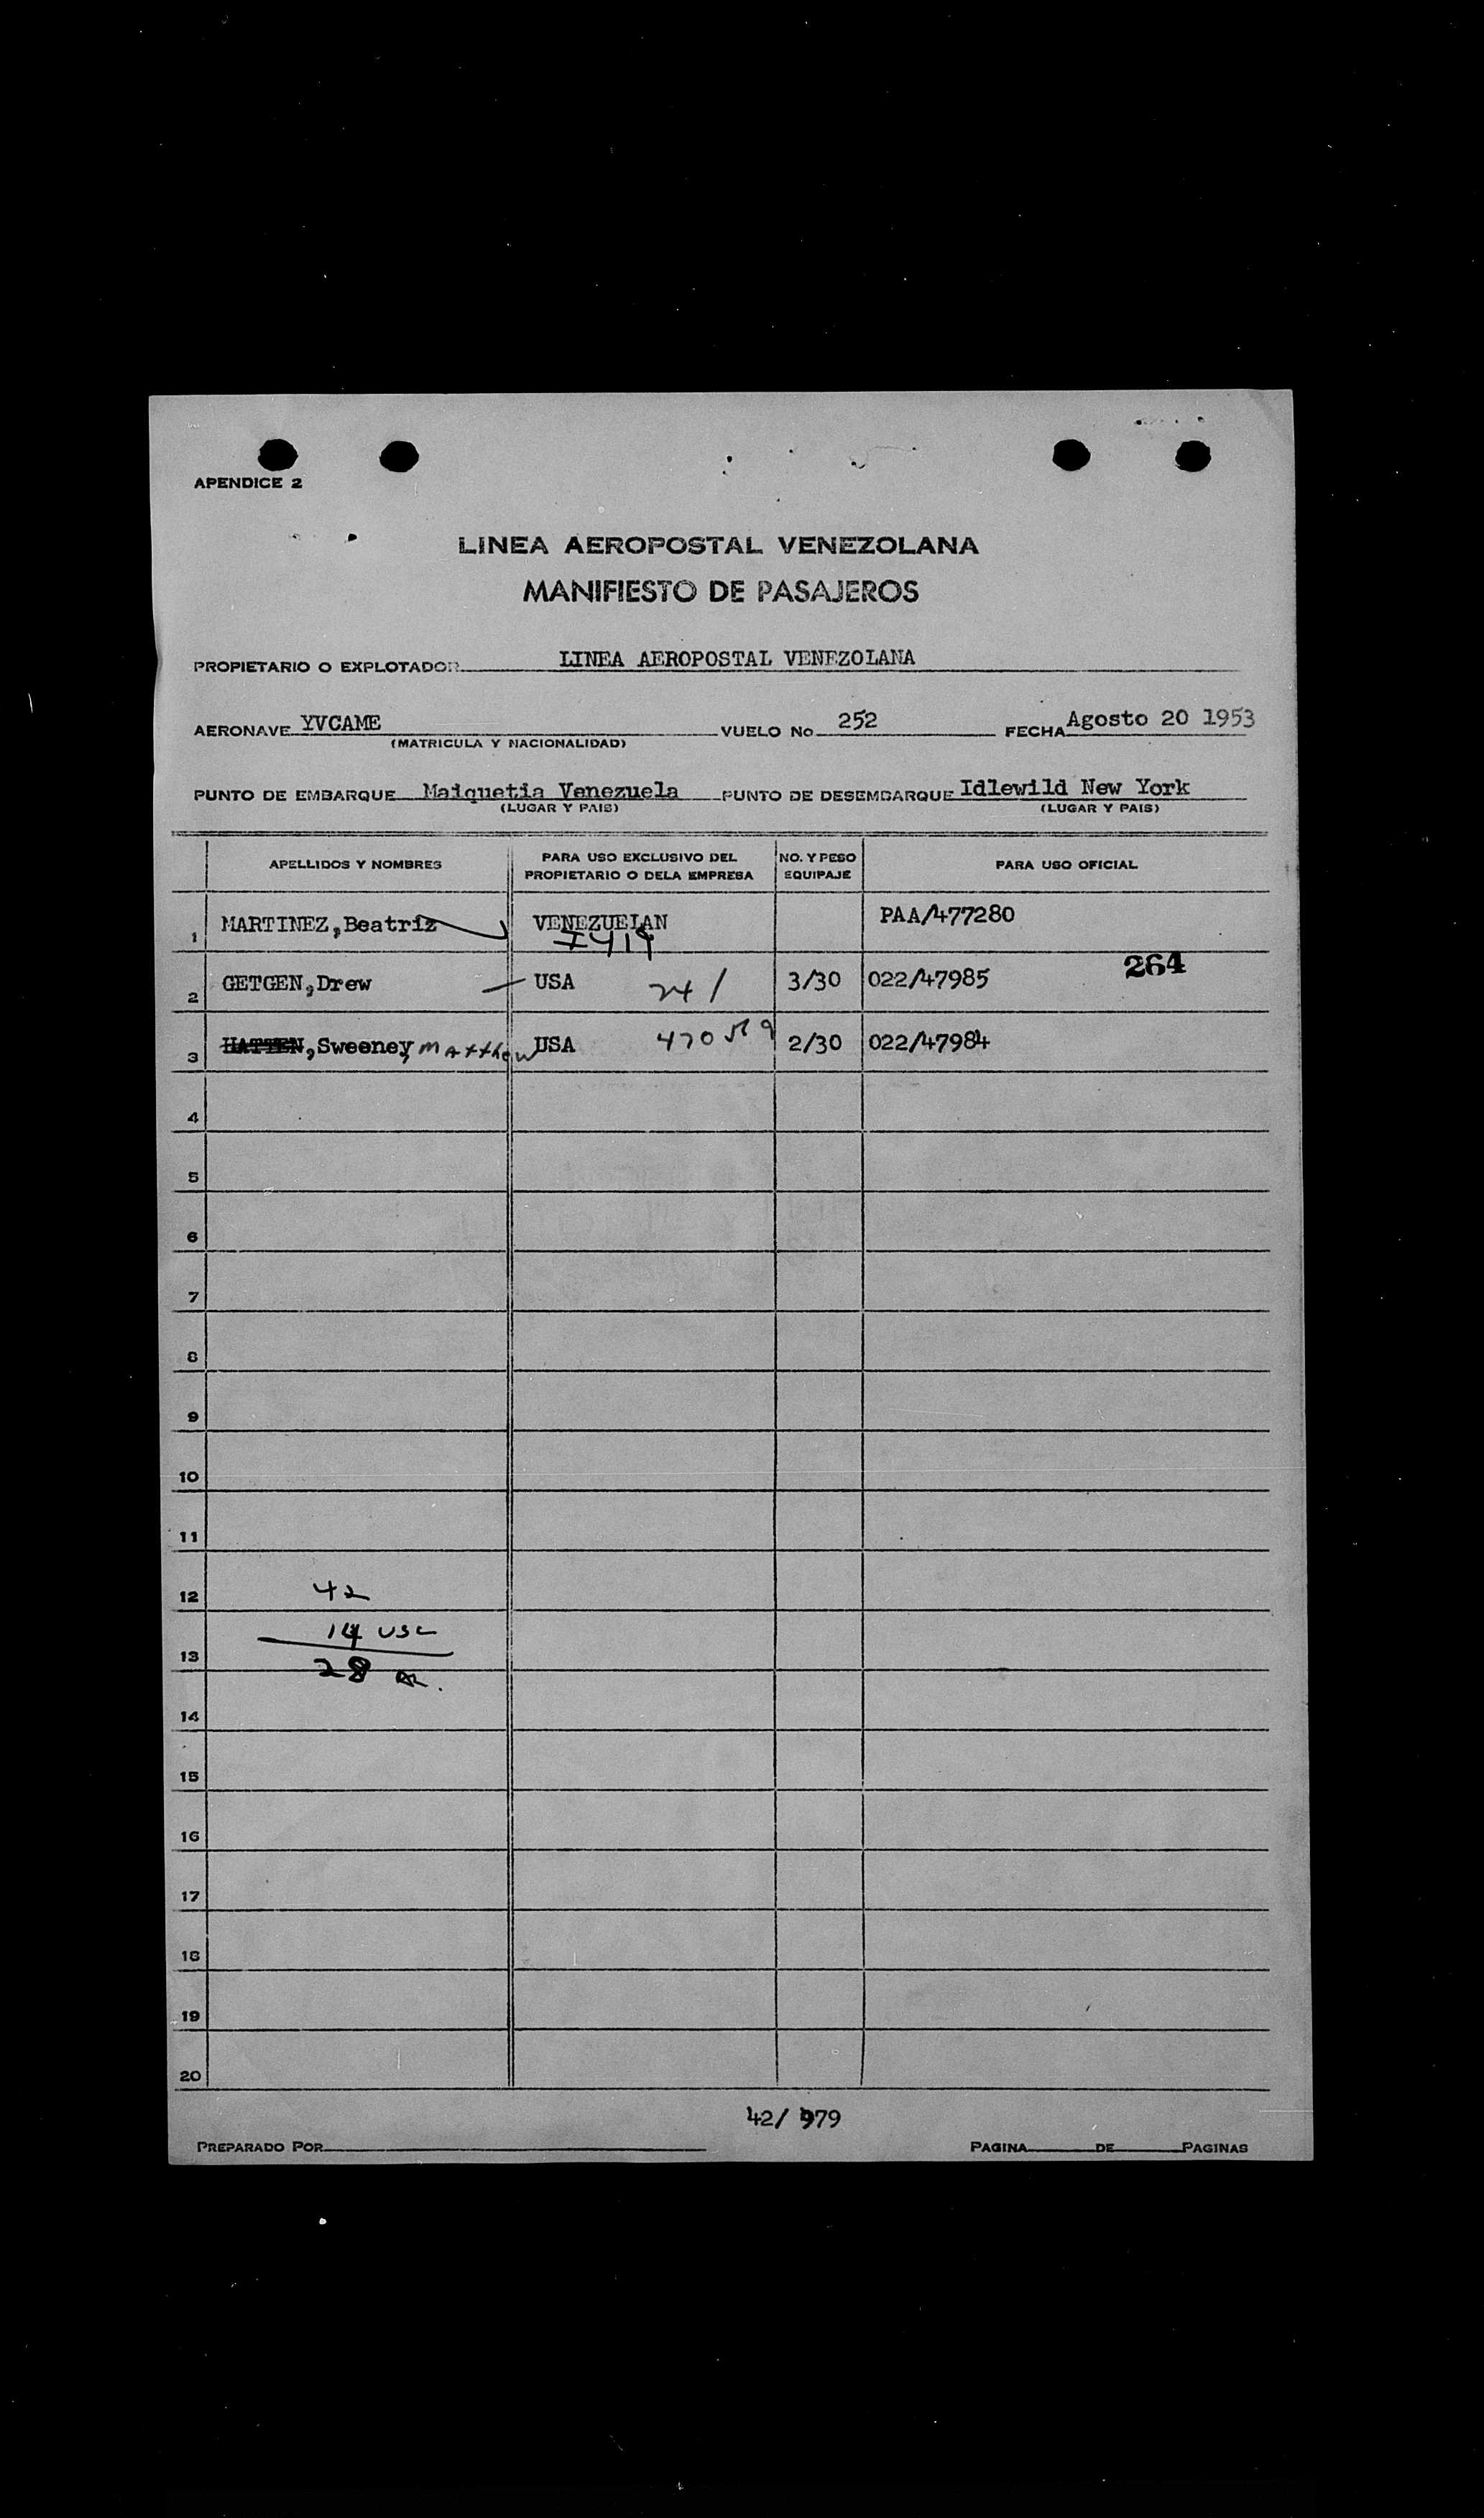 APENDICE 2
LINEA AEROPOSTAL VENEZOLANA
MANIFIESTO DE PASAJEROS
PROPIETARIO O EXPLOTADOR LINEA AEROPOSTAL VENEZOLANA
AERONAVE YVCAME VUELO No 252 FECHA Agosto 20 1953
(MATRICULA Y NACIONALIDAD)
PUNTO DE EMBARQUE Maiquetia Venezuela PUNTO DE DESEMBARQUE Idlewild New York
(LUGAR Y PAIS) (LUGAR Y PAIS)
APELLIDOS Y NOMBRES PARA USO EXCLUSIVO DEL PROPIETARIO O DELA EMPRESA NO. Y PESO EQUIPAJE PARA USO OFICIAL
1 MARTINEZ,Beatriz VENEZUELAN PAA/477280
I 419
264
2 GETGEN,Drew USA 241 3/30 022/47985
3 HATTEN,Sweeney Matthew USA 470519 2/30 022/47984
4
5
6
7
8
9
10
11
12 42
13 14 USC
28
14
15
16
17
18
19
20
42/ 979
PREPARADO POR PAGINA DE PAGINAS